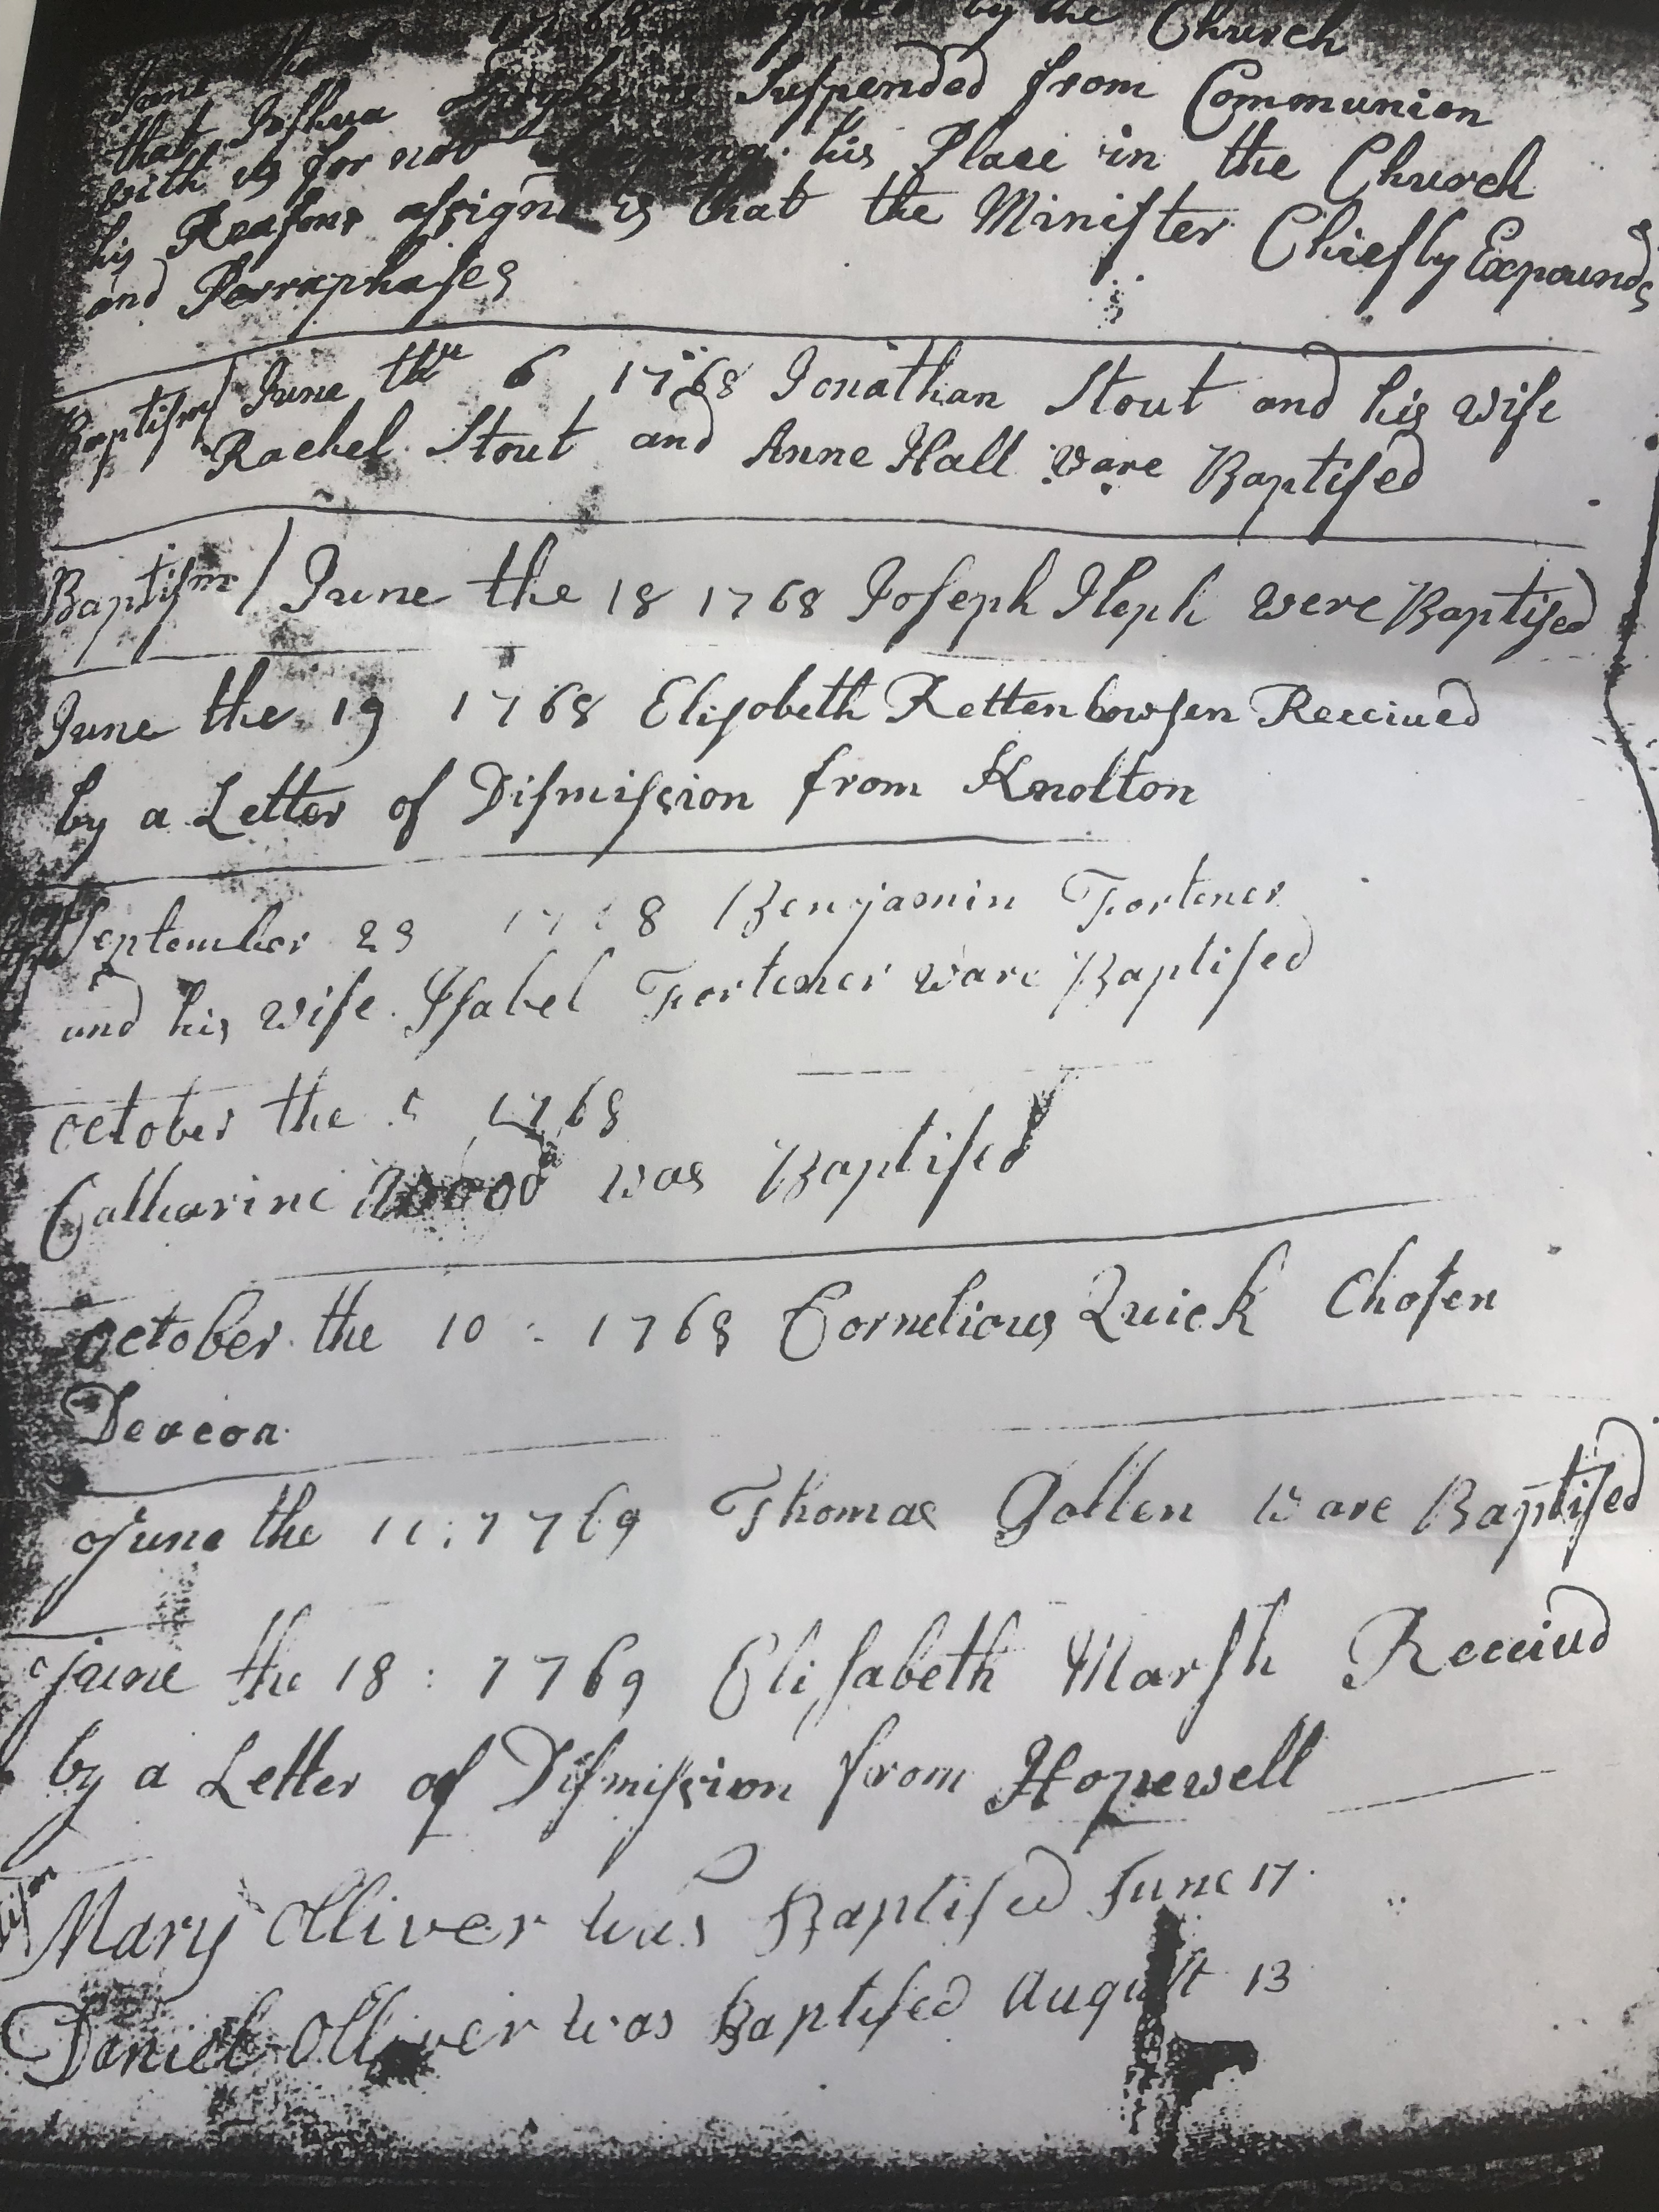 June the 1768 by the Church
that Joshua Suspended from Communion
with us for not his Place in the Church
his Reasons assignd is that the Minister Chiefly Expounds
and Parraphases
Baptism / June the 6 1768 Jonathan Stout and his wife
Rachel Stout and Anne Hall ware Baptised
Baptism / June the 18 1768 Joseph Heph were Baptised
June the 19 1768 Elisobeth Rettenbowsen Receiued
by a Letter of Dismission from Knolton
September 29 1768 Benjamin Fortener
and his wife Isabel Fortener ware Baptised
october the 1768
Catharine was Baptised
october the 10 : 1768 Cornelious Quick Chosen
Deacon
June the 11 : 1769 Thomas Gollen ware Baptised
june the 18 : 1769 Elisabeth Marsh Receiud
by a Letter of Dismission from Hopewell
Mary Olliver was Baptised June 17
Daniel Olliver was Baptised August 13